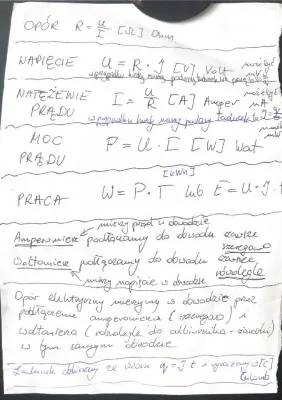 OPÓR R = U/I [Ω] Om
NAPIĘCIE U = R · I [V] Volt
NATĘŻENIE PRĄDU I = U/R [A] Amper mA
MOC PRĄDU P = U · I [W] Wat
[kWh]
PRACA W = P · T lub E = U · I · t
mierzy prąd w obwodzie
Amperomierz podłączamy do obwodu zawsze
szeregowo
Woltomierz podłączamy do obwodu zawsze
równolegle
mierzy napięcie w obwodzie
Opór elektryczny mierzymy w obwodzie przez
podłączenie amperomierza (szeregowo) i
woltomierza (równolegle do odbiornika - żarówki)
w tym samym obwodzie
Ładunek obliczamy ze wzoru q = I · t i wyrażamy w [C]
Culomb